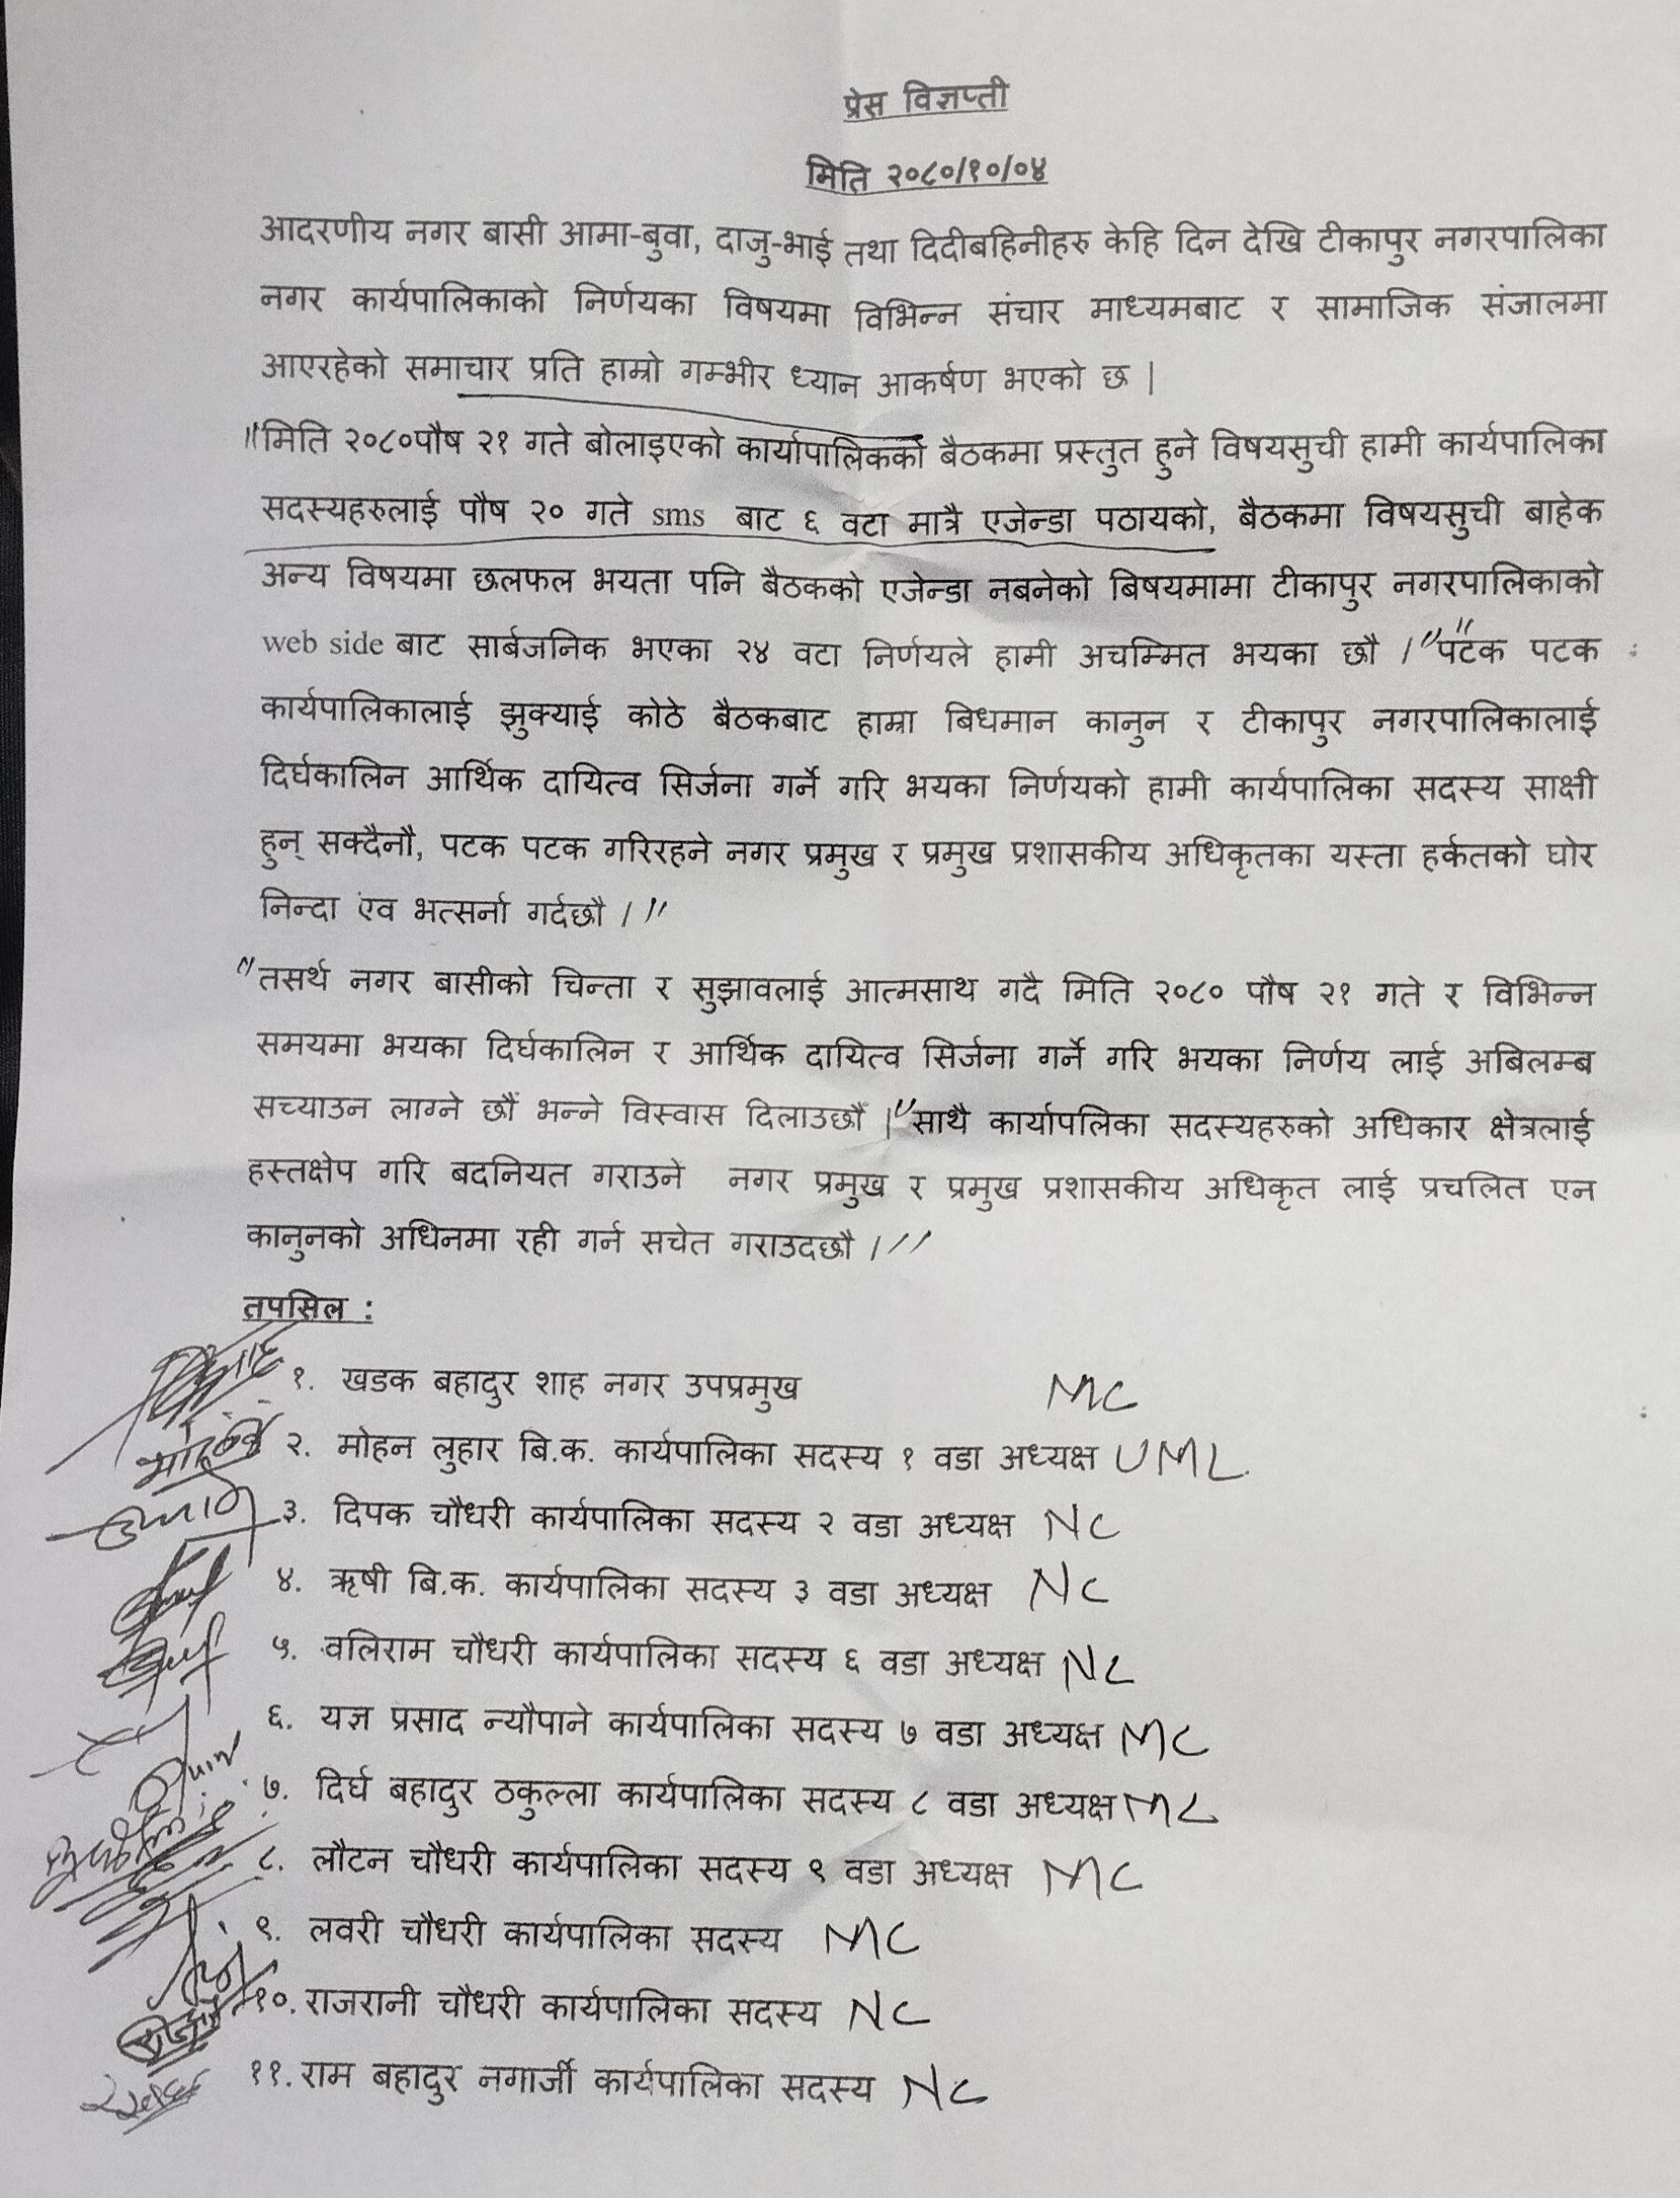 प्रेस विज्ञप्ती
मिति २०८०/१०/०४
आदरणीय नगर बासी आमा-बुवा, दाजु-भाई तथा दिदीबहिनीहरु केहि दिन देखि टीकापुर नगरपालिका
नगर कार्यपालिकाको निर्णयका विषयमा विभिन्न संचार माध्यमबाट र सामाजिक संजालमा
आएरहेको समाचार प्रति हाम्रो गम्भीर ध्यान आकर्षण भएको छ |
"मिति २०८०पौष २१ गते बोलाइएको कार्यापालिकको बैठकमा प्रस्तुत हुने विषयसुची हामी कार्यपालिका
सदस्यहरुलाई पौष २० गते sms बाट ६ वटा मात्रै एजेन्डा पठायको, बैठकमा विषयसुची बाहेक
अन्य विषयमा छलफल भयता पनि बैठकको एजेन्डा नबनेको बिषयमामा टीकापुर नगरपालिकाको
web side बाट सार्बजनिक भएका २४ वटा निर्णयले हामी अचम्मित भयका छौ ।" "पटक पटक
कार्यपालिकालाई झुक्याई कोठे बैठकबाट हाम्रा बिधमान कानुन र टीकापुर नगरपालिकालाई
दिर्घकालिन आर्थिक दायित्व सिर्जना गर्ने गरि भयका निर्णयको हामी कार्यपालिका सदस्य साक्षी
हुन् सक्दैनौ, पटक पटक गरिरहने नगर प्रमुख र प्रमुख प्रशासकीय अधिकृतका यस्ता हर्कतको घोर
निन्दा एंव भत्सर्ना गर्दछौ ।"
"तसर्थ नगर बासीको चिन्ता र सुझावलाई आत्मसाथ गदै मिति २०८० पौष २१ गते र विभिन्न
समयमा भयका दिर्घकालिन र आर्थिक दायित्व सिर्जना गर्ने गरि भयका निर्णय लाई अबिलम्ब
सच्याउन लाग्ने छौं भन्ने विस्वास दिलाउछौं |"साथै कार्यापलिका सदस्यहरुको अधिकार क्षेत्रलाई
हस्तक्षेप गरि बदनियत गराउने नगर प्रमुख र प्रमुख प्रशासकीय अधिकृत लाई प्रचलित एन
कानुनको अधिनमा रही गर्न सचेत गराउदछौ ।"
तपसिल :
१. खडक बहादुर शाह नगर उपप्रमुख MC
२. मोहन लुहार बि.क. कार्यपालिका सदस्य १ वडा अध्यक्ष UML
३. दिपक चौधरी कार्यपालिका सदस्य २ वडा अध्यक्ष NC
४. ऋषी बि.क. कार्यपालिका सदस्य ३ वडा अध्यक्ष NC
५. वलिराम चौधरी कार्यपालिका सदस्य ६ वडा अध्यक्ष NC
६. यज्ञ प्रसाद न्यौपाने कार्यपालिका सदस्य ७ वडा अध्यक्ष MC
७. दिर्घ बहादुर ठकुल्ला कार्यपालिका सदस्य ८ वडा अध्यक्ष MC
८. लौटन चौधरी कार्यपालिका सदस्य ९ वडा अध्यक्ष MC
९. लवरी चौधरी कार्यपालिका सदस्य MC
१०. राजरानी चौधरी कार्यपालिका सदस्य NC
११. राम बहादुर नगार्जी कार्यपालिका सदस्य NC